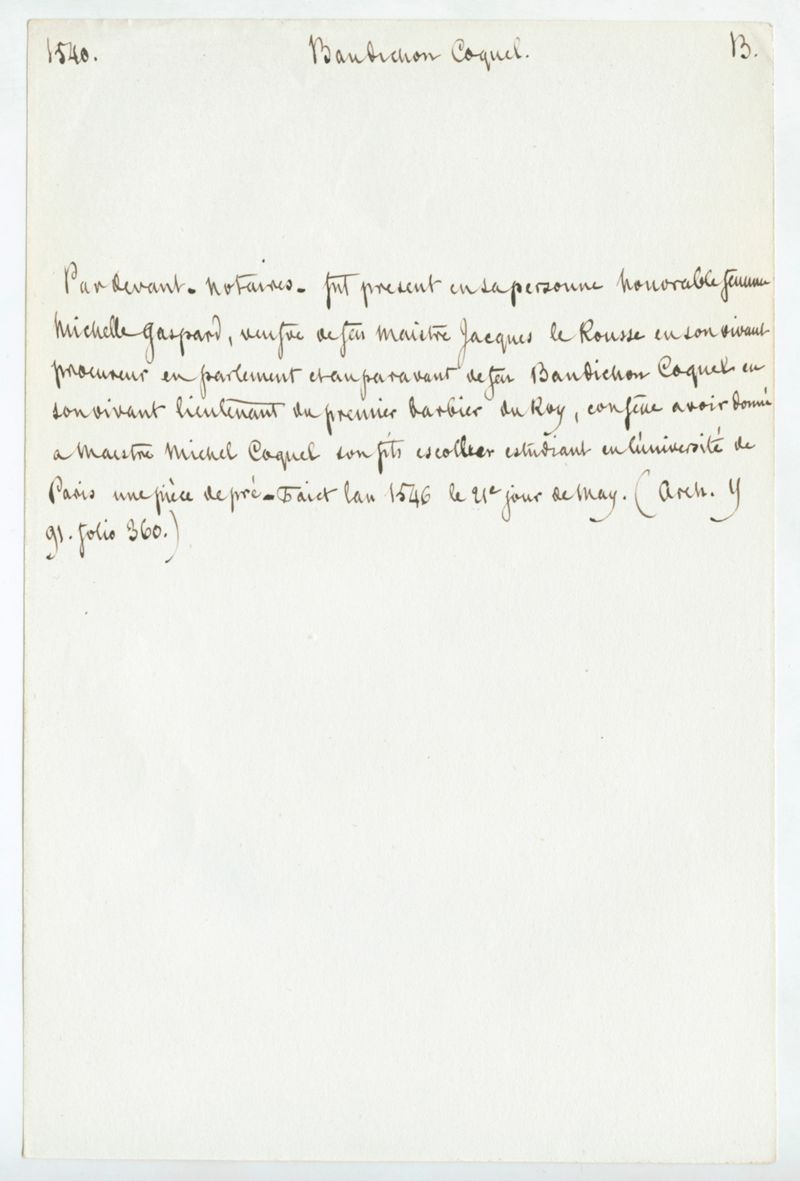 1540. Baudichon Coquel. B.
Par devant - notaires - fut present en sa personne honorable femme
Michelle Gaspard, veufve de feu Maistre Jacques le Rousse en son vivant
procureur en parlement et auparavant de feu Baudichon Coquel en
son vivant lieutenant du premier barbier du Roy, confesse avoir donné
a Maestre Michel Coquel son fils escollier estudiant en l'université de
Paris une pièce de pré - Faict lan 1546 le 21e jour de May. (Arch. Y
91. folio 360.)